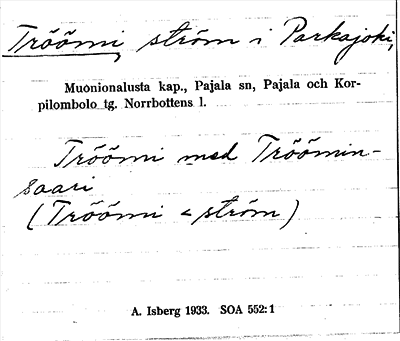 Tröömi, ström i Parkajoki,
Muonionalusta kap., Pajala sn, Pajala och Kor-
pilombolo tg. Norrbottens l.
Tröömi med Tröömin-
saari
(Tröömi < ström)
A. Isberg 1933. SOA 552:1